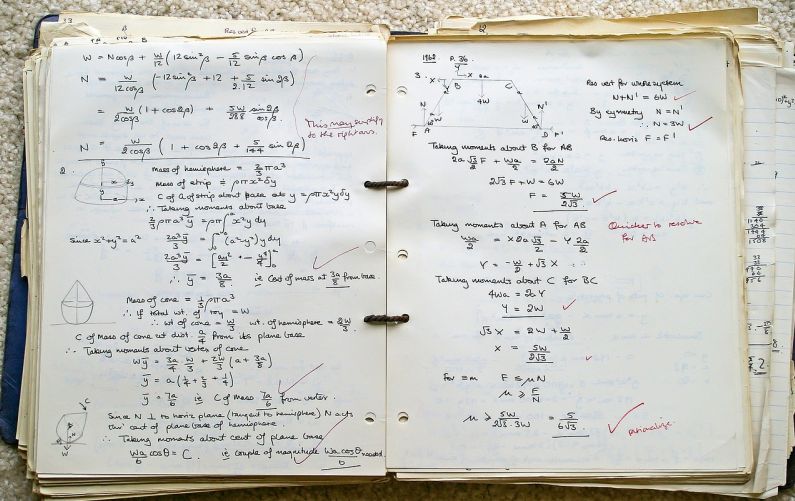 W = N cos β + W/12 (12 sin² β - 5/12 sin β cos β)
N = W/12cosβ (-12 sin² β + 12 + 5/2.12 sin 2β)
= W/2cosβ (1 + cos 2β) + 5W/288 sin 2β/cosβ
This may simplify
to the right ans.
N = W/2cosβ (1 + cos 2β + 5/144 sin 2β)
2.
Mass of hemisphere = 2/3 πa³
Mass of strip = ρπx²δy
∴ Taking moments about base
2/3 ρπa³ȳ = ρπ∫x²y dy
Since x²+y² = a²
2a³ȳ/3 = ∫(a²-y²)y dy
2a³ȳ/3 = [a²y²/2 - y⁴/4]
∴ ȳ = 3a/8 ie Cent of mass at 3a/8 from base.
Mass of cone = 1/3 ρπa³
∴ If total wt. of toy = W
∴ wt of cone = W/3 wt. of hemisphere = 2W/3
C of Mass of cone at dist. a/4 from its plane base
∴ Taking moments about vertex of cone
Wȳ = 3a/4 W/3 + 2W/3 (a + 3a/8)
ȳ = a(1/4 + 2/3 + 1/4)
ȳ = 7a/6 ie C of mass 7a/6 from vertex.
Since N ⊥ to horiz plane (tangent to hemisphere) N acts
thro' cent of plane base of hemisphere.
∴ Taking moments about cent of plane base
Wa/6 cosθ = C. ie couple of magnitude Wa cosθ/6 needed.
1968. P.36.
3.
Taking moments about B for AB
2a√3 F + Wa/2 = 2aN/2
2√3 F + W = 6W
F = 5W/2√3
Res vert for whole system
N + N' = 6W
By symmetry N = N'
∴ N = 3W
Res. horiz F = F'
Taking moments about A for AB
Quicker to resolve
for AB
Wa/2 = X 2a√3/2 - Y 2a/2
Y = -W/2 + √3 X
Taking moments about C for BC
4Wa = 2aY
Y = 2W
√3 X = 2W + W/2
X = 5W/2√3
for eqm F ≤ μN
μ ≥ F/N
μ ≥ 5W/2√3.3W = 5/6√3